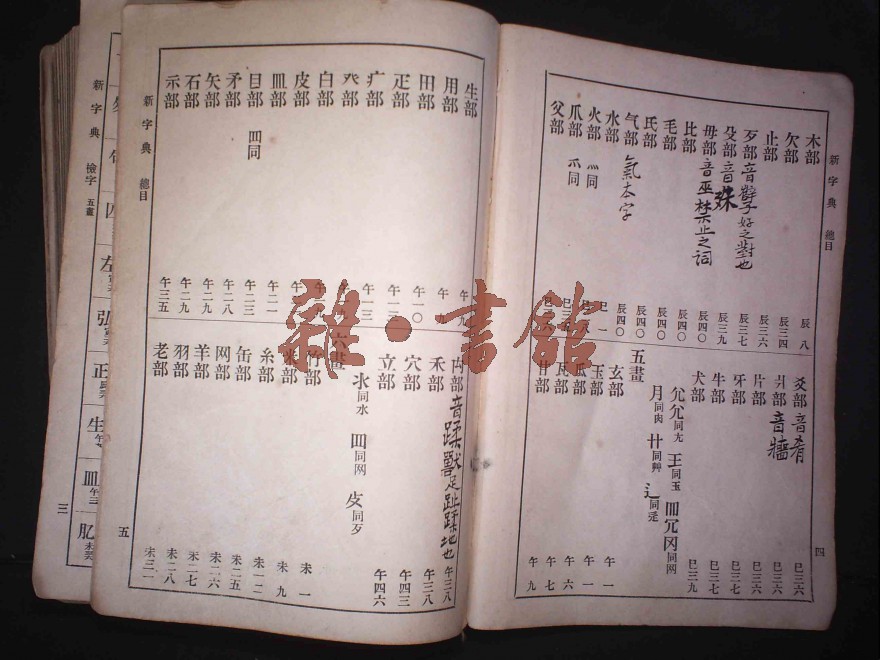 新字典 總目
木部 辰八
欠部 辰三四
止部 辰三六
歹部 音孽好之對也 辰三七
殳部 音殊 辰三九
毋部 音巫禁止之词 辰四〇
比部 辰四〇
毛部 辰四〇
氏部 辰四〇
气部 氣本字 辰四〇
水部 巳一
火部 灬同
爪部 爫同 巳三五
父部
爻部 音肴 巳三六
爿部 音牆 巳三六
片部 巳三六
牙部 巳三七
牛部 巳三七
犬部 巳三九
尣兀同尢 王同玉 罒㓁冈同网
月同肉 艹同艸 辶同辵
五畫
玄部 午一
玉部 午一
瓜部 午六
瓦部 午六
甘部 午九
四
生部 午九
用部 午九
田部 午一〇
疋部 午一三
疒部 午一三
癶部
白部
皮部 午
皿部 午
目部 罒同 午二三
矛部 午二八
矢部 午二九
石部 午二九
示部 午三五
新字典 總目
禸部 音蹂獸足趾蹂地也 午三八
禾部 午三八
穴部 午四三
立部 午四六
氺同水 罒同网 歺同歹
六畫
竹部 未一
米部 未九
糸部 未一二
缶部 未二五
网部 未二六
羊部 未二七
羽部 未二八
老部 未三一
五
新字典 檢字 五畫
左
弘
正
生
皿
肥
三
雜·書館